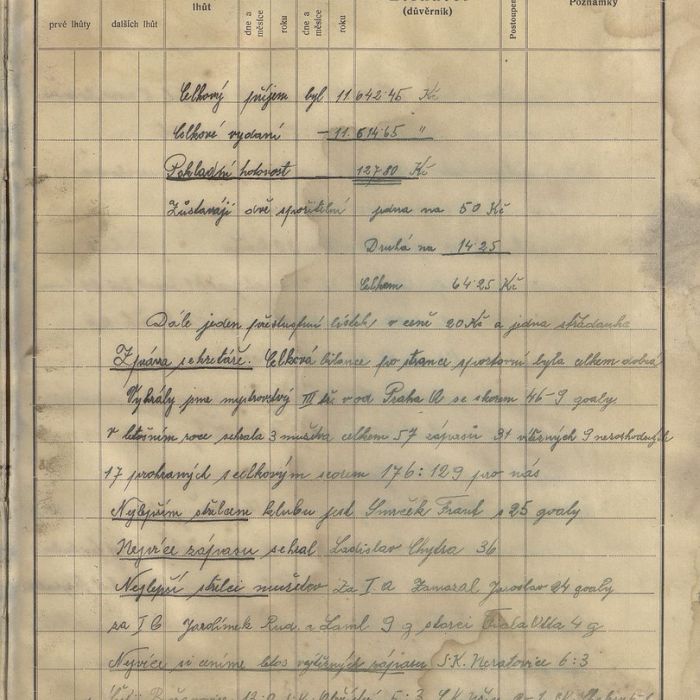 prvé lhůty
dalších lhůt
lhůt
dne a měsíce
roku
dne a měsíce
roku
(důvěrník)
Poznámky
Celkový příjem byl 11.642·45 Kč
Celkové vydaní – 11.514·65 "
Pokladní hotovost 127·80 Kč
Zůstávají dvě spořitelní jedna na 50 Kč
Druhá na 14·25
Celkem 64·25 Kč
Dále jeden přestupní lístek v ceně 20 Kč a jedna
Zpráva sekretáře. Celková bilance po stránce sportovní byla celkem dobrá
Vyhrály jsme mistrovství III tř. v od Praha A se skorem 46–9 goaly
v letošním roce sehrála 3 mužstva celkem 57 zápasů 31 vítězných 9 nerozhodných
17 prohraných s celkovým scorem 176:129 pro nás
Nejlepším střelcem klubu jest Smrček Frant s 25 goaly
Nejvíce zápasu sehrál Ladislav Chytra 36
Nejlepší střelci mužstev Za I. A Zamazal Jaroslav 24 goaly
za I B Jardínek Rud. a Laml 9 g starci Fiala Otta 4 g
Nejvíce si ceníme letos vyhraných zápasu S.K. Neratovice 6:3